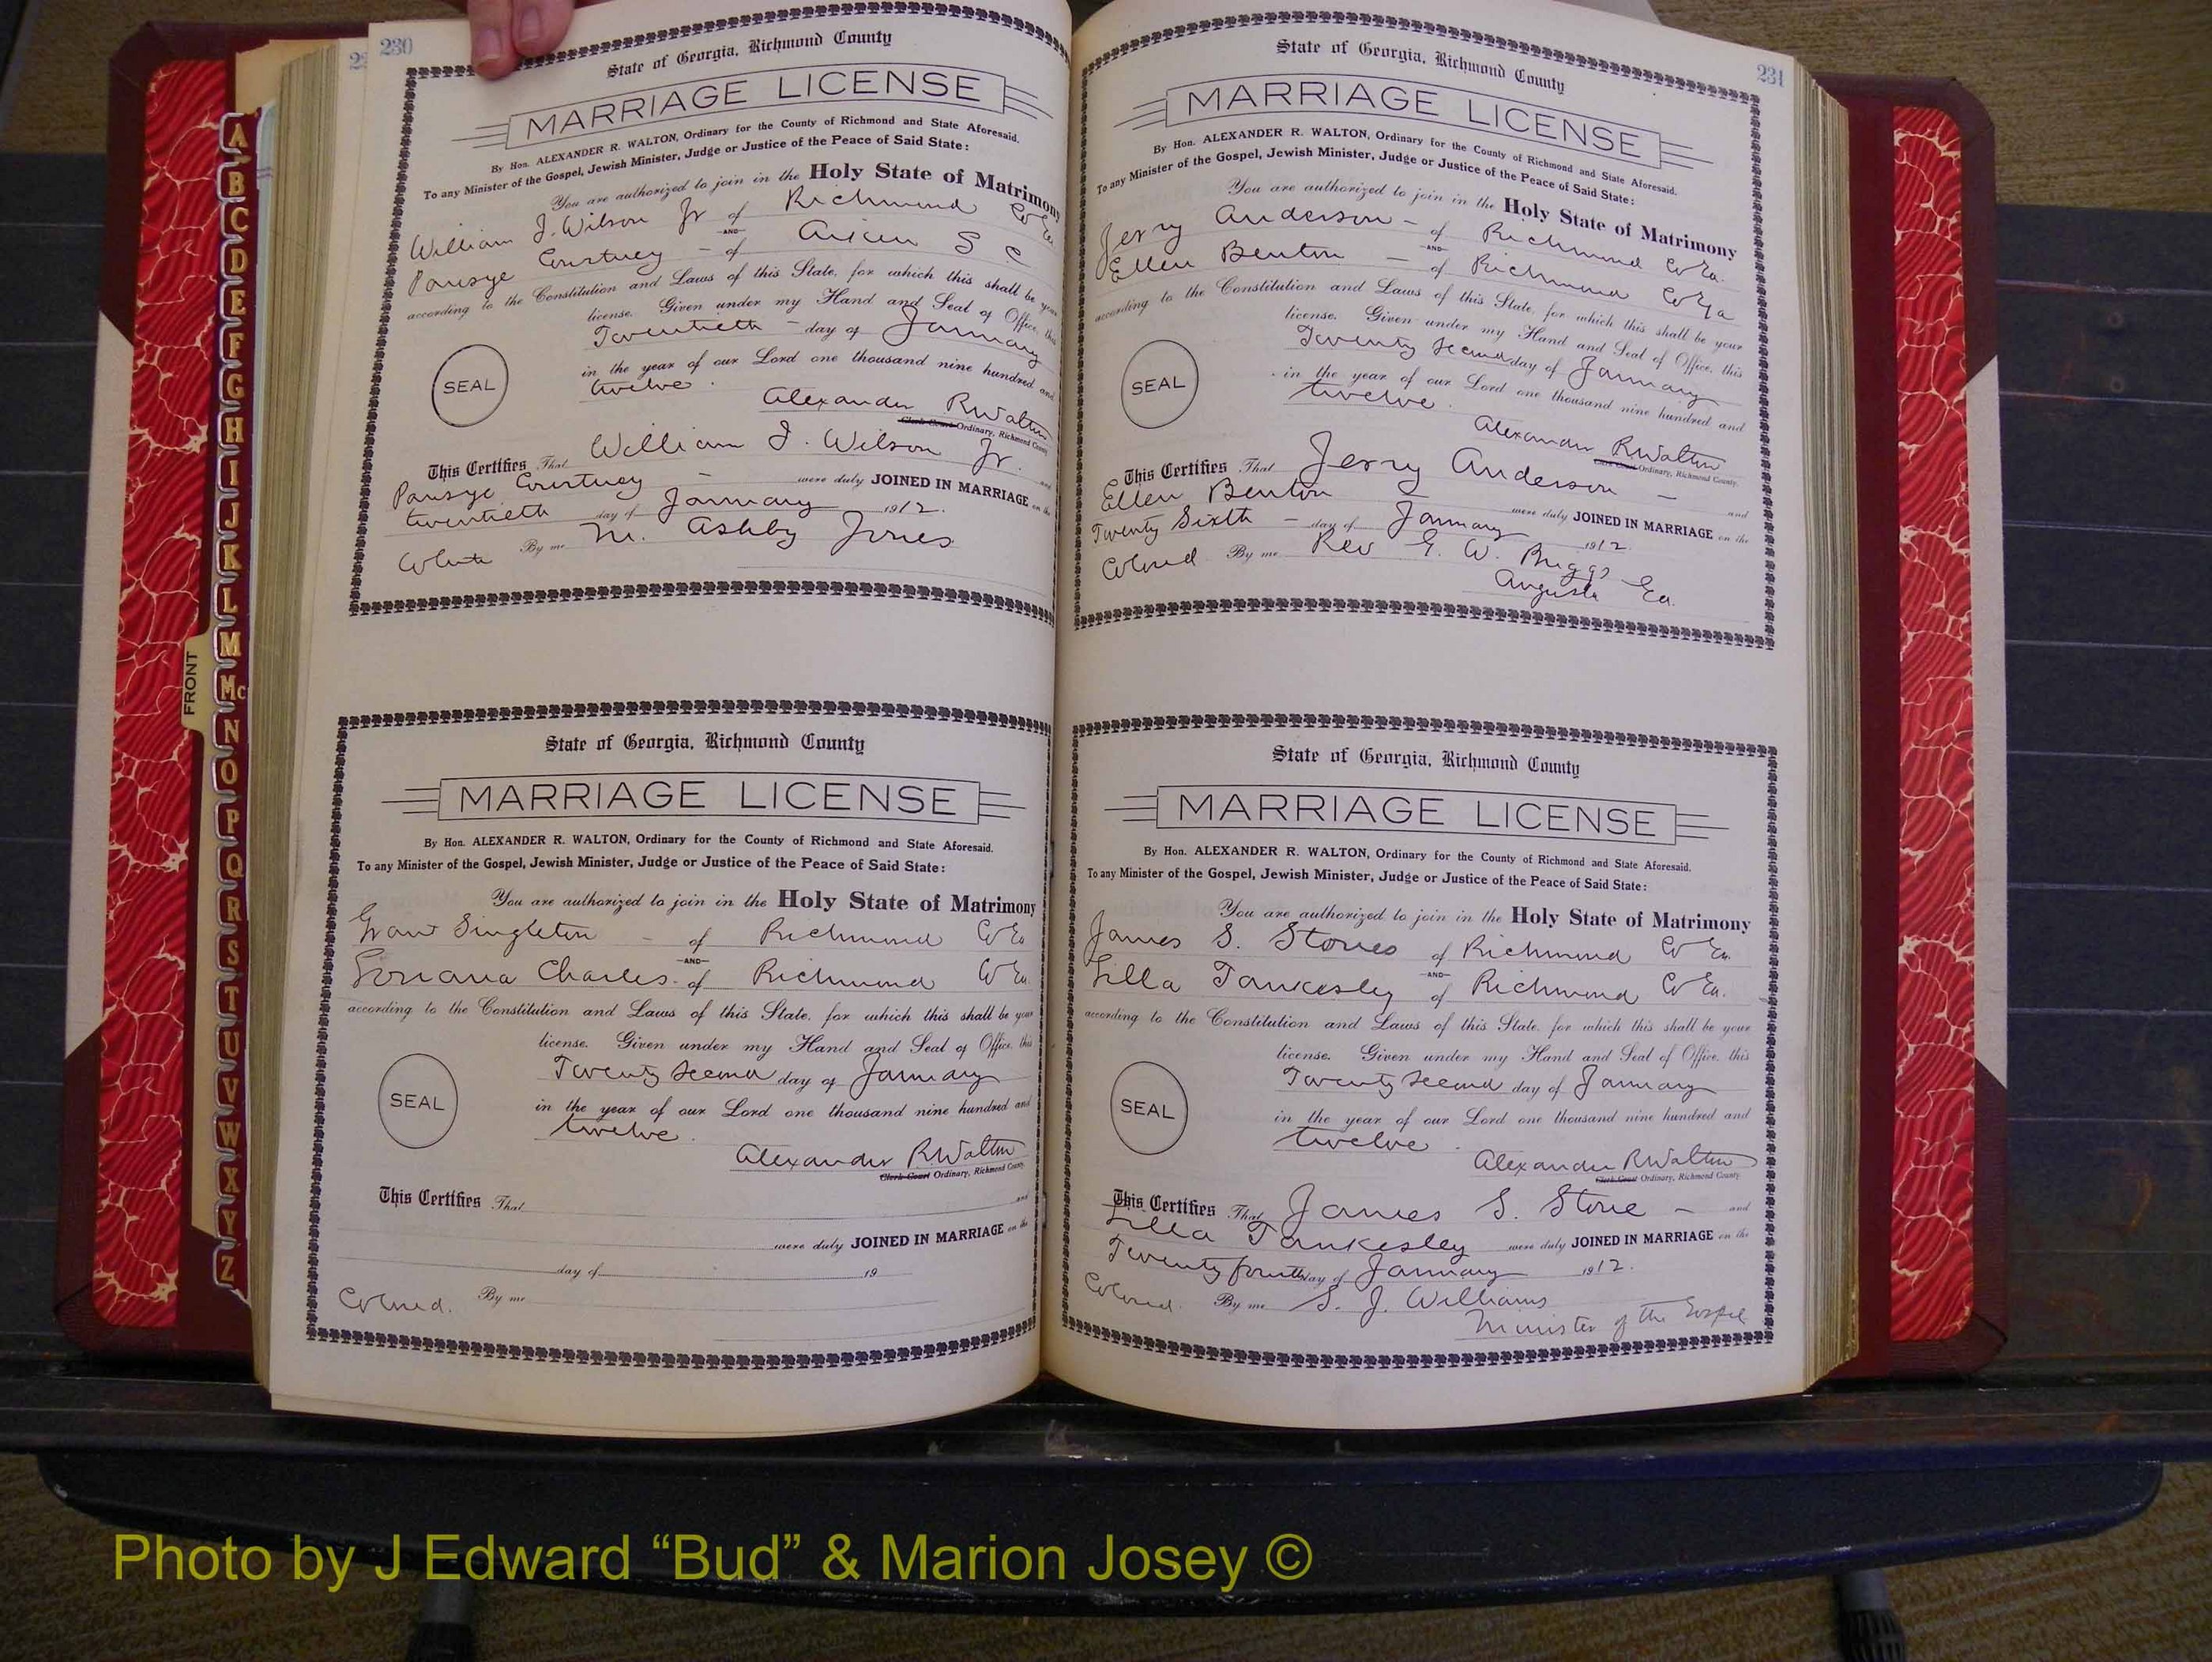 230
State of Georgia, Richmond County
MARRIAGE LICENSE
By Hon. ALEXANDER R. WALTON, Ordinary for the County of Richmond and State Aforesaid.
To any Minister of the Gospel, Jewish Minister, Judge or Justice of the Peace of Said State:
You are authorized to join in the Holy State of Matrimony
William J. Wilson Jr of Richmond Co Ga
AND
Courtney - of Aiken S C
according to the Constitution and Laws of this State, for which this shall be your
license. Given under my Hand and Seal of Office, this
Twentieth - day of January
in the year of our Lord one thousand nine hundred and
twelve.
SEAL
Alexander R Walton
Clerk Court Ordinary, Richmond County
This Certifies That William J. Wilson Jr. and
Courtney - were duly JOINED IN MARRIAGE on the
twentieth day of January 1912.
White By me M. Ashby Jones
State of Georgia, Richmond County
MARRIAGE LICENSE
By Hon. ALEXANDER R. WALTON, Ordinary for the County of Richmond and State Aforesaid.
To any Minister of the Gospel, Jewish Minister, Judge or Justice of the Peace of Said State:
You are authorized to join in the Holy State of Matrimony
Grant Singleton - of Richmond Co Ga
AND
Charles - of Richmond Co Ga
according to the Constitution and Laws of this State, for which this shall be your
license. Given under my Hand and Seal of Office, this
Twenty Second day of January
in the year of our Lord one thousand nine hundred and
twelve.
SEAL
Alexander R Walton
Clerk Court Ordinary, Richmond County
This Certifies That and
were duly JOINED IN MARRIAGE on the
day of 19
Colored. By me
231
State of Georgia, Richmond County
MARRIAGE LICENSE
By Hon. ALEXANDER R. WALTON, Ordinary for the County of Richmond and State Aforesaid.
To any Minister of the Gospel, Jewish Minister, Judge or Justice of the Peace of Said State:
You are authorized to join in the Holy State of Matrimony
Jerry Anderson - of Richmond Co Ga.
AND
Ellen Benton - of Richmond Co Ga
according to the Constitution and Laws of this State, for which this shall be your
license. Given under my Hand and Seal of Office, this
Twenty Second day of January
in the year of our Lord one thousand nine hundred and
twelve.
SEAL
Alexander R Walton
Clerk Court Ordinary, Richmond County.
This Certifies That Jerry Anderson - and
Ellen Benton - were duly JOINED IN MARRIAGE on the
Twenty Sixth - day of January 1912.
Colored By me Rev G. W. Briggs
Augusta Ga.
State of Georgia, Richmond County
MARRIAGE LICENSE
By Hon. ALEXANDER R. WALTON, Ordinary for the County of Richmond and State Aforesaid.
To any Minister of the Gospel, Jewish Minister, Judge or Justice of the Peace of Said State:
You are authorized to join in the Holy State of Matrimony
James S. Stones of Richmond Co Ga.
AND
Lilla Tankesley of Richmond Co Ga.
according to the Constitution and Laws of this State, for which this shall be your
license. Given under my Hand and Seal of Office, this
Twenty Second day of January
in the year of our Lord one thousand nine hundred and
twelve.
SEAL
Alexander R Walton
Clerk Court Ordinary, Richmond County.
This Certifies That James S. Stone - and
Lilla Tankesley were duly JOINED IN MARRIAGE on the
Twenty fourth day of January 1912.
Colored. By me S. J. Williams
Minister of the Gospel
A
B
C
D
E
F
G
H
I
J
K
L
M
Mc
N
O
P
Q
R
S
T
U
V
W
X
Y
Z
FRONT
Photo by J Edward “Bud” & Marion Josey ©